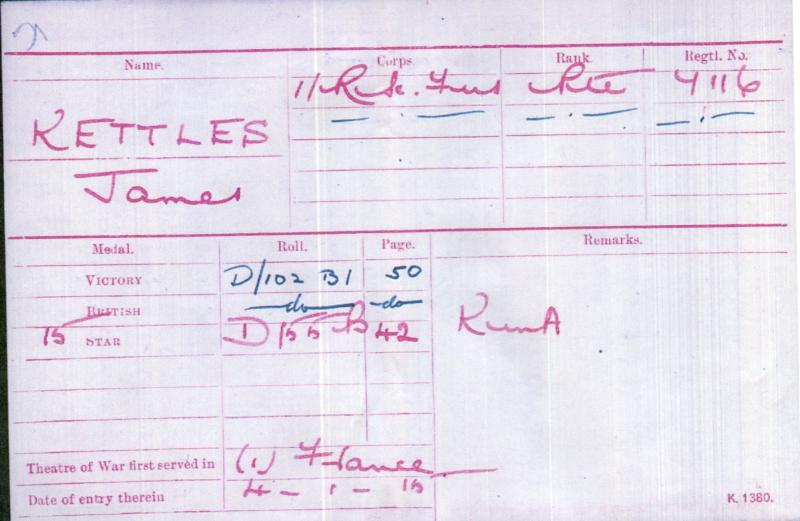 Name. Corps. Rank. Regtl. No.
1/R. Sc. Fus Pte 4116
KETTLES — . — — . — — . —
James
Medal. Roll. Page. Remarks.
VICTORY D/102 B1 50
BRITISH —do— —do—
15 STAR D/55 B 42 K in A
Theatre of War first served in (1) France
Date of entry therein 4 - 1 - 15
K. 1380.